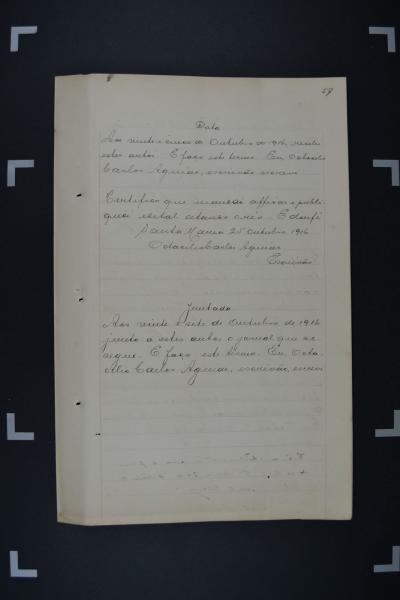 57
Data
Aos vinte e cinco de Outubro de 1916, recebi
estes autos. E faço este termo. Eu, Octacilio
Carlos Aguiar, escrivão, escrevi.
Certifico que mandei affixar e publi
quei edital citando o réo. E dou fé
Santa Maria 25 Outubro 1916
Octacilio Carlos Aguiar
Escrivão
Juntada
Aos vinte e sete de Outubro de 1916
junto a estes autos o jornal que se
segue. E faço este termo. Eu, Octa-
cilio Carlos Aguiar, escrivão, escrevi